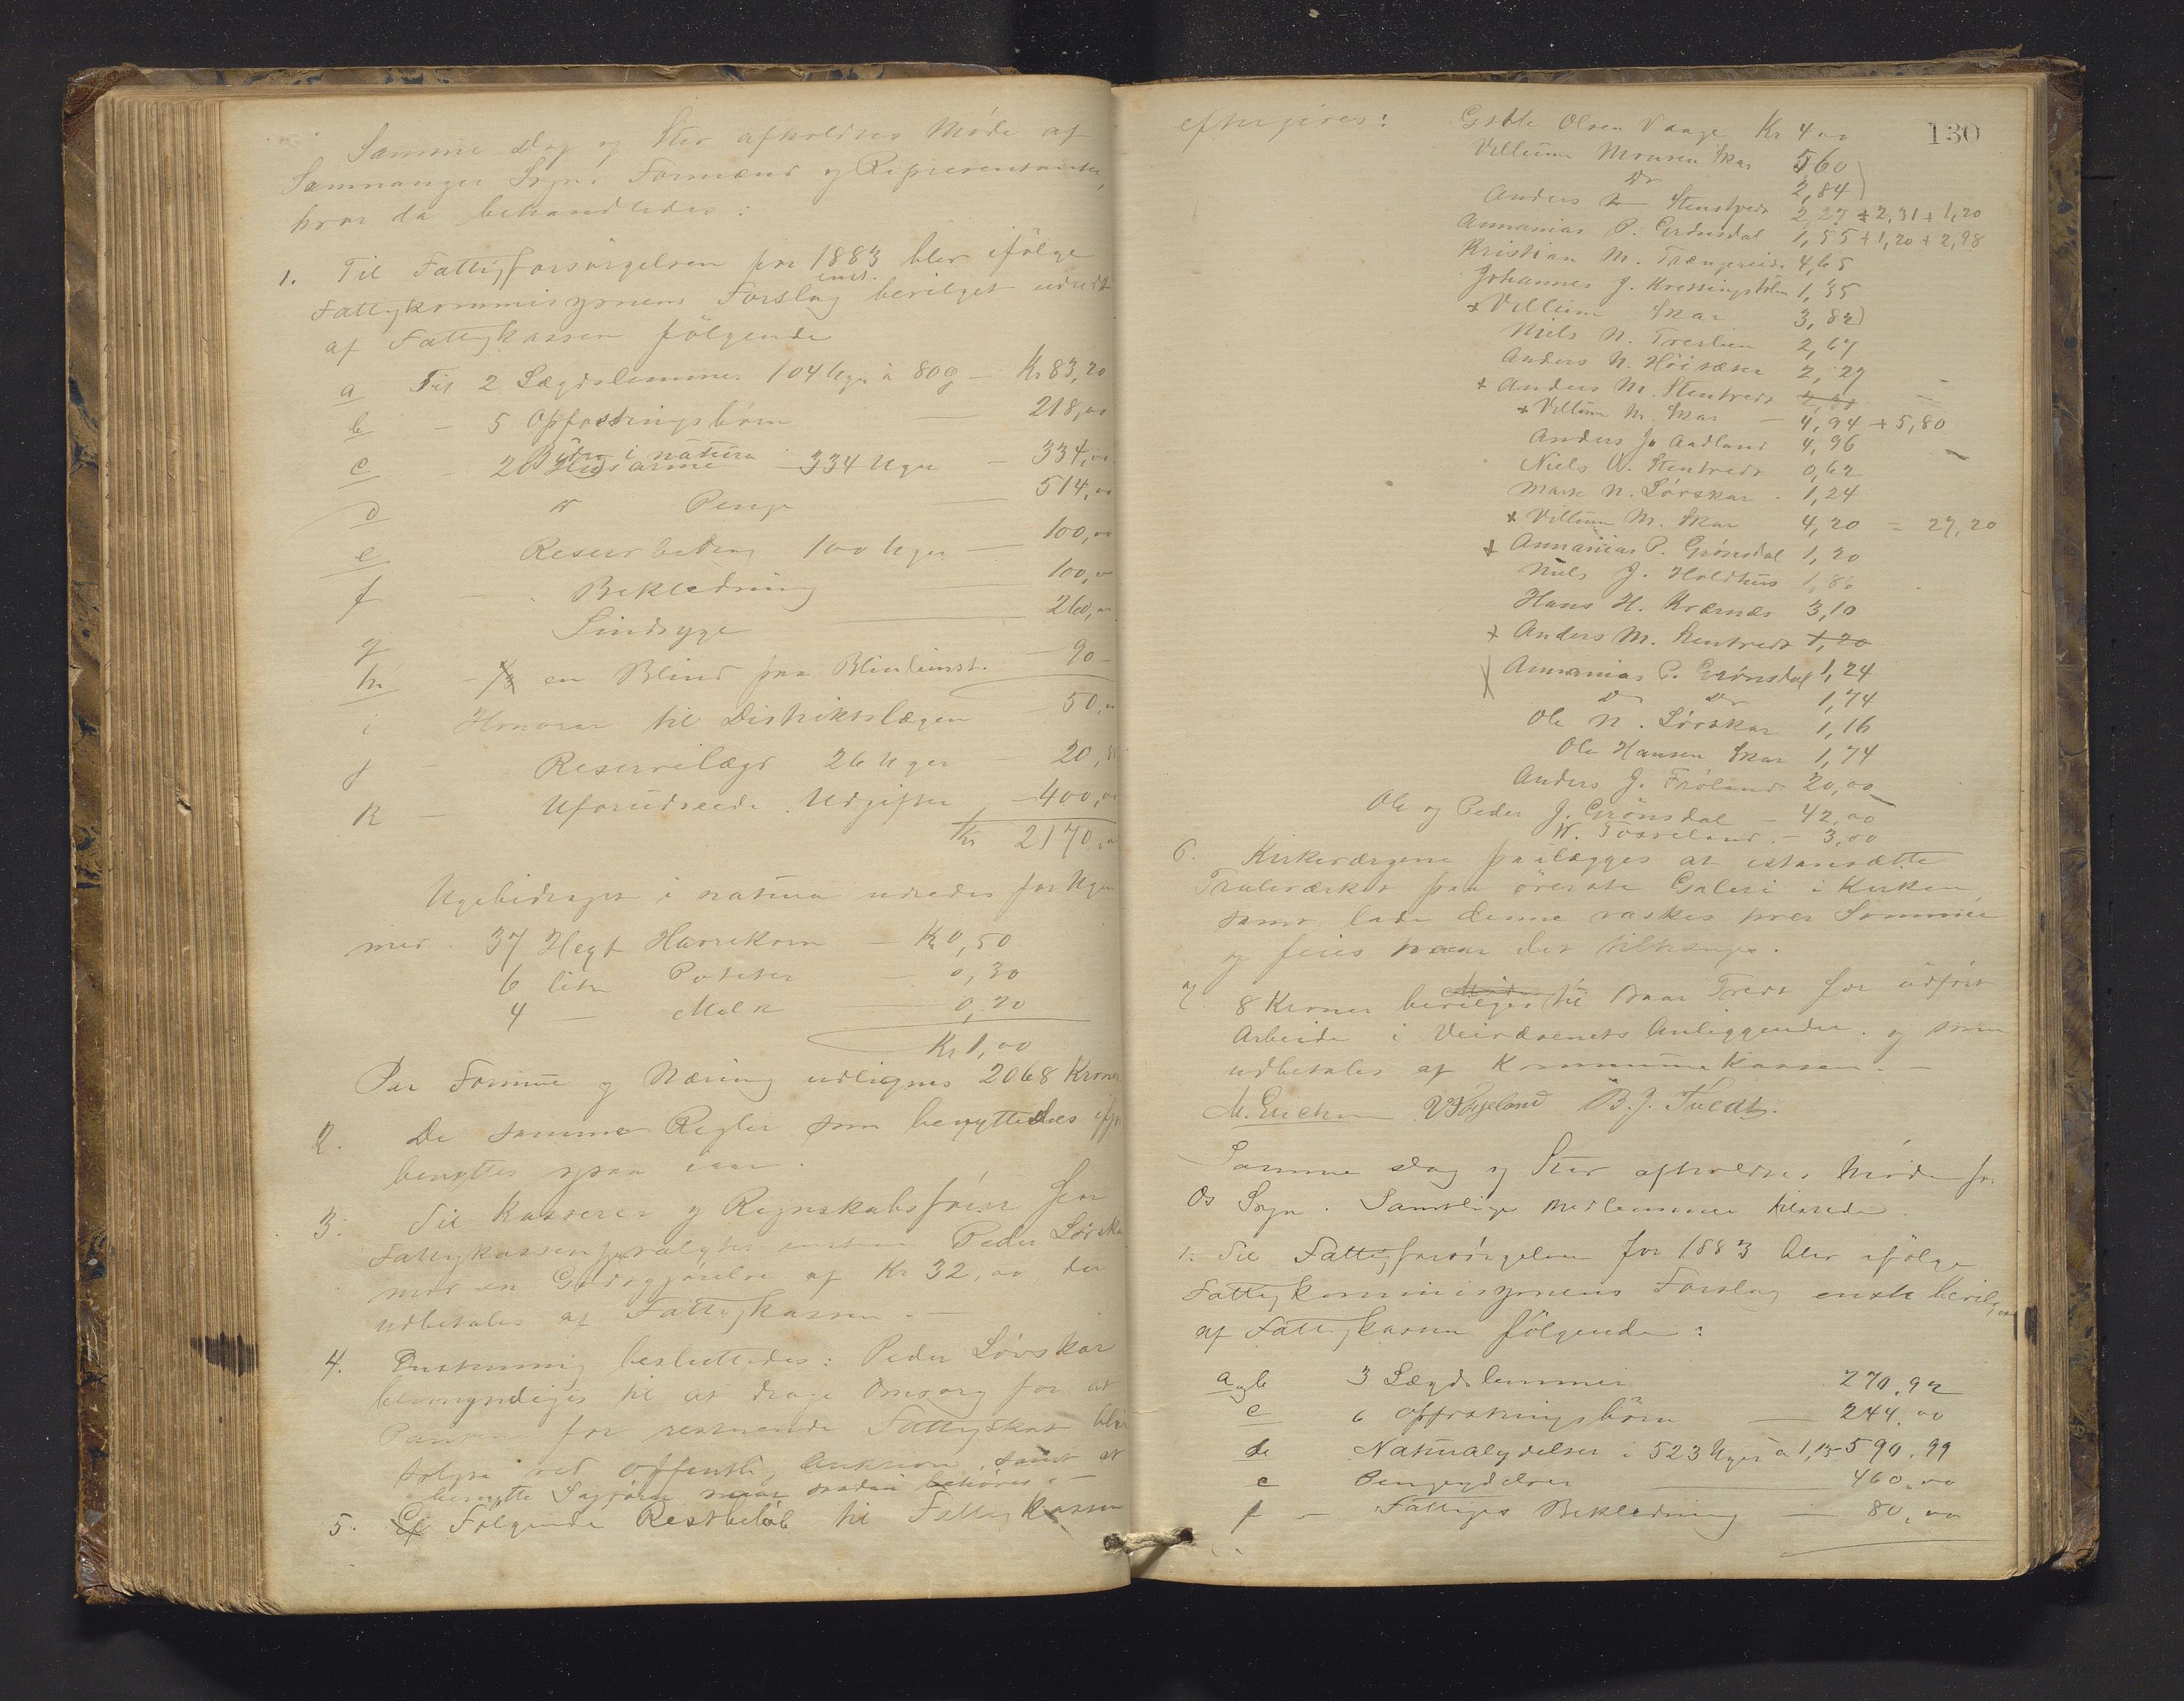 Samme Dag og Sted afholdtes Møde af
Samnanger Sogns Formænd og Repræsentanter,
hvor da behandledes:
1. Til Fattigforsørgelsen for 1883 blev ifølge
Fattigkommisjonens Forslag enst. bevilget udredt
af Fattigkassen følgende
a Til 2 Lægdslemmer 104 Uger à 80 ø — Kr 83,20
b — 5 Opfostringsbørn — 218,00
c — 20 Husarme Bidra i natura — 334 Uger — 334,00
d Do Penge — 514,00
e Reservebidrag 100 Uger — 100,00
f — Beklædning — 100,00
g Sindsyge — 260,00
h — en Blind paa Blindeinst. — 90 —
i Honorar til Distriktslægen — 50,00
j — Reservelægd 26 Uger — 20,80
k — Uforudseede Udgifter — 400,00
Kr 2170,00
Ugebidraget i natura udredes for Ugen
med 37 Hegt Havrekorn — Kr 0,50
6 liter Poteter — 0,30
4 — Melk — 0,20
Kr 1,00
Paa Formue og Næring udlignes 2068 Kroner
2. De samme Regler som benyttedes ifjor
benyttes ogsaa iaar.
3. Til Kasserer og Regnskabsfører for
Fattigkassen gjenvalgtes enstem Peder Sørskar
mod en Godtgjørelse af Kr 32,00 der
udbetales af Fattigkassen. —
4. Enstemmig besluttedes: Peder Sørskar
bemyndiges til at drage Omsorg for at
Panten for resterende Fattigskat blive
solgte ved offentlig Auktion, samt at
benytte Sagfører naar saadan behøves. —
5. Følgende Restbeløb til Fattigkassen
130
eftergives: Gjøtle Olsen Vaage Kr 4 00
Villum Monsen Skar 5,60
Do 2,84
Anders Stentvedt 2,27 + 2,31 + 1,20
Annanias P. Grønsdal 1,55 + 1,20 + 2,98
Kristian M. Trængereid 4,65
Johannes J. 1,35
+ Villum Skar 3,82
Niels N. Treslien 2,67
Anders N. Høisæter 2,27
+ Anders M. Stentvedt
+ Villum M. Skar — 4,94 + 5,80
Anders J. Aadland 4,96
Niels A. Stentvedt 0,62
Mark N. Sørskar 1,24
+ Villum M. Skar 4,20 = 27,20
+ Annanias P. Grønsdal 1,20
Niels J. Holdhus 1,86
Hans H. Kvernæs 3,10
+ Anders M. Stentvedt 1,20
Annanias P. Grønsdal 1,24
Do Do 1,74
Ole N. Sørskar 1,16
Ole Hansen Skar 1,74
Anders J. Frøland 20,00
Ole og Peder J. Grønsdal — 42,00
N. Tøsseland — 3,00
6. Kirkeværgerne paalægges at istandsætte
Tralværket paa øverste Galleri i Kirken
samt lade denne vaskes hver Sommer
og feies naar det tiltrænges.
7. 8 Kroner bevilges til Baar Tvedt for udført
Arbeide i Veivæsenets Anliggender og som
udbetales af Kommunekassen. —
B. J. Tvedt.
Samme Dag og Sted afholdtes Møde for
Os Sogn. Samtlige Medlemmer tilstede.
1. Til Fattigforsørgelsen for 1883 blev ifølge
Fattigkommisjonens Forslag enst bevilget
af Fattigkassen følgende:
a og b 3 Lægdslemmer 270,92
c 6 Opfostringsbørn — 244,00
d Naturalydelser i 523 Uger à 1,13 590,99
e Pengeydelser — 460,00
f — Fattiges Beklædning — 80,00